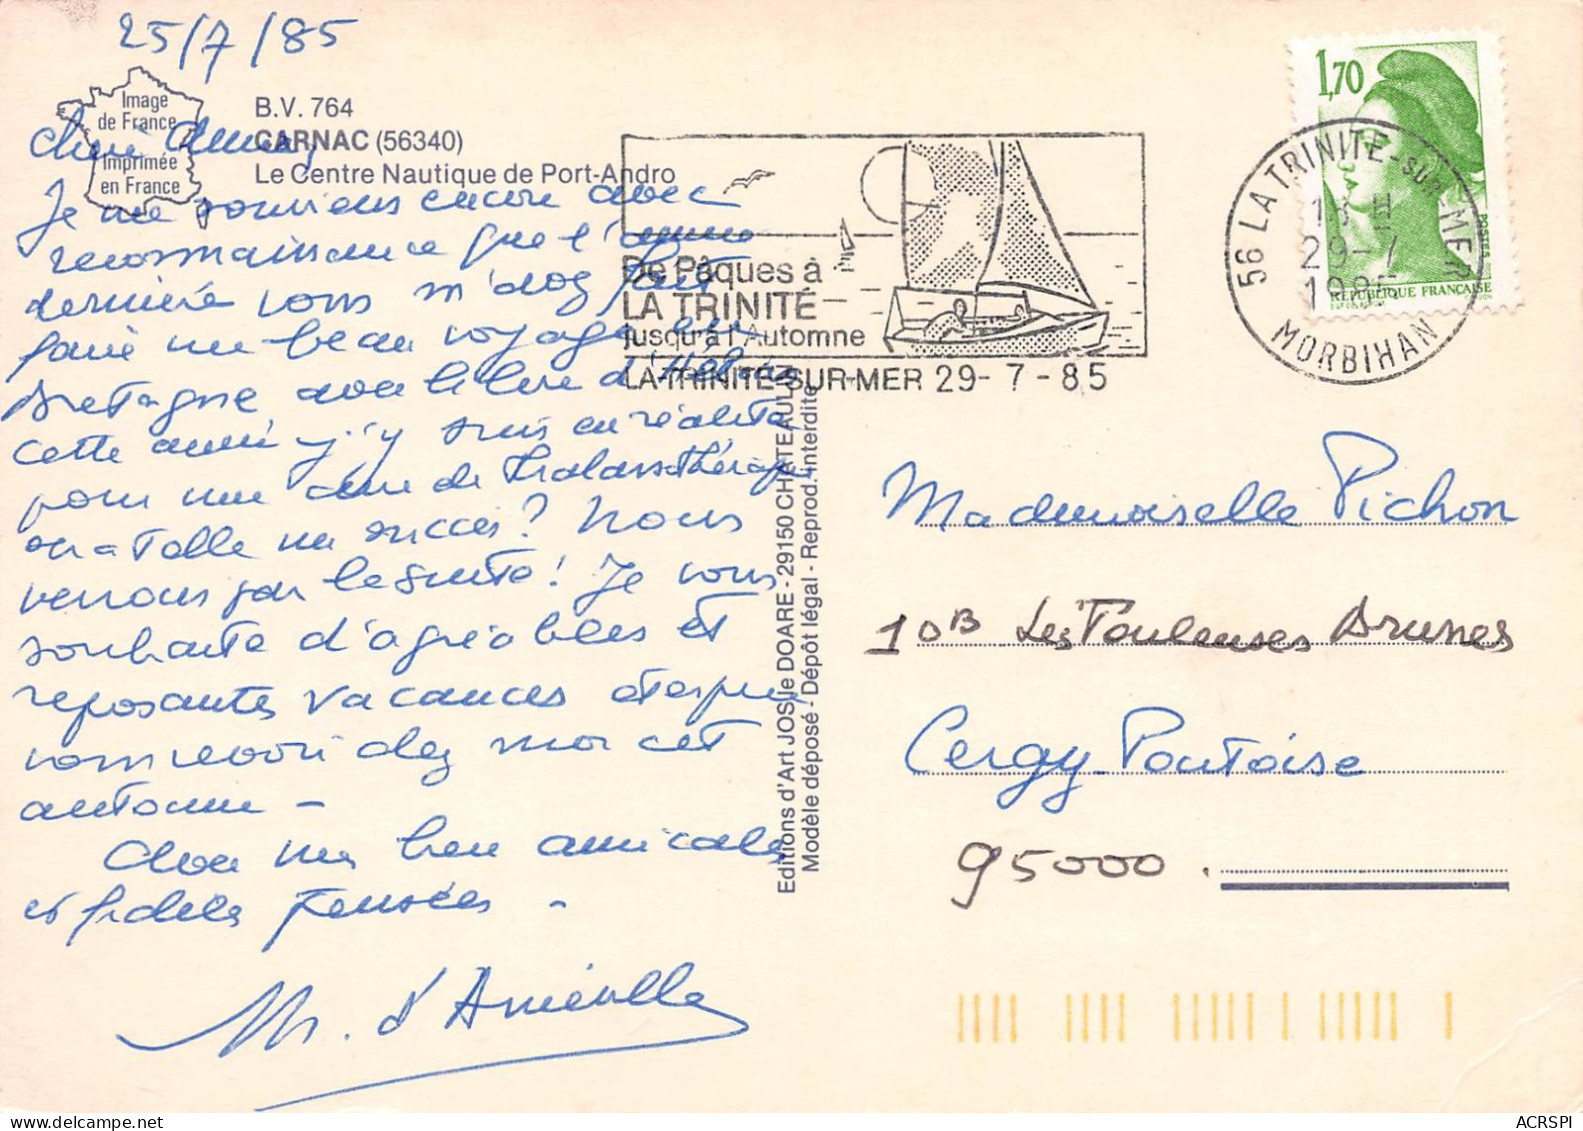 25/7/85
Image
de France
Imprimée
en France
B.V. 764
CARNAC (56340)
Le Centre Nautique de Port-Andro
Je me souviens encore avec
reconnaissance que l'année
dernière vous m'avez fait
faire un beau voyage en
Bretagne avec le livre d'
cette année j'y suis en réalité
pour une cure de thalassothérapie
un succès? Nous
verrons par la suite! Je vous
souhaite d'agréables et
reposantes vacances et espère
vous revoir chez moi cet
automne -
Avec mes bien amicales
et fidèles pensées -
M. d'
Editions d'Art JOS le DOARE - 29150 CHATEAULIN
Modèle déposé - Dépôt légal - Reprod. interdite
De Pâques à
LA TRINITÉ
jusqu'à l'Automne
LA TRINITE-SUR-MER 29-7-85
1,70
POSTES
REPUBLIQUE FRANÇAISE
56 LA TRINITE-SUR-MER
18 H
29-7
1985
MORBIHAN
Mademoiselle Pichon
10B Les Touleuses Brunes
Cergy-Pontoise
95000.
ACRSPI